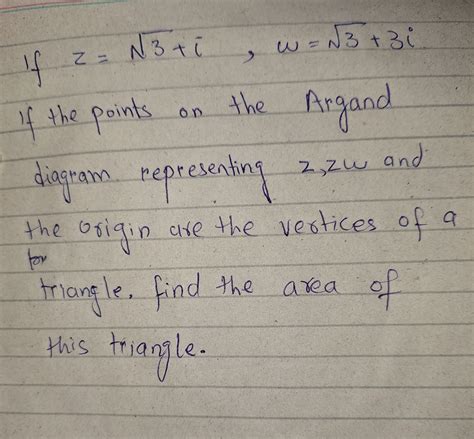 If z = √3+i , w = √3 + 3i
if the points on the Argand
diagram representing z, zw and
the origin are the vertices of a
for
triangle. find the area of
this triangle.